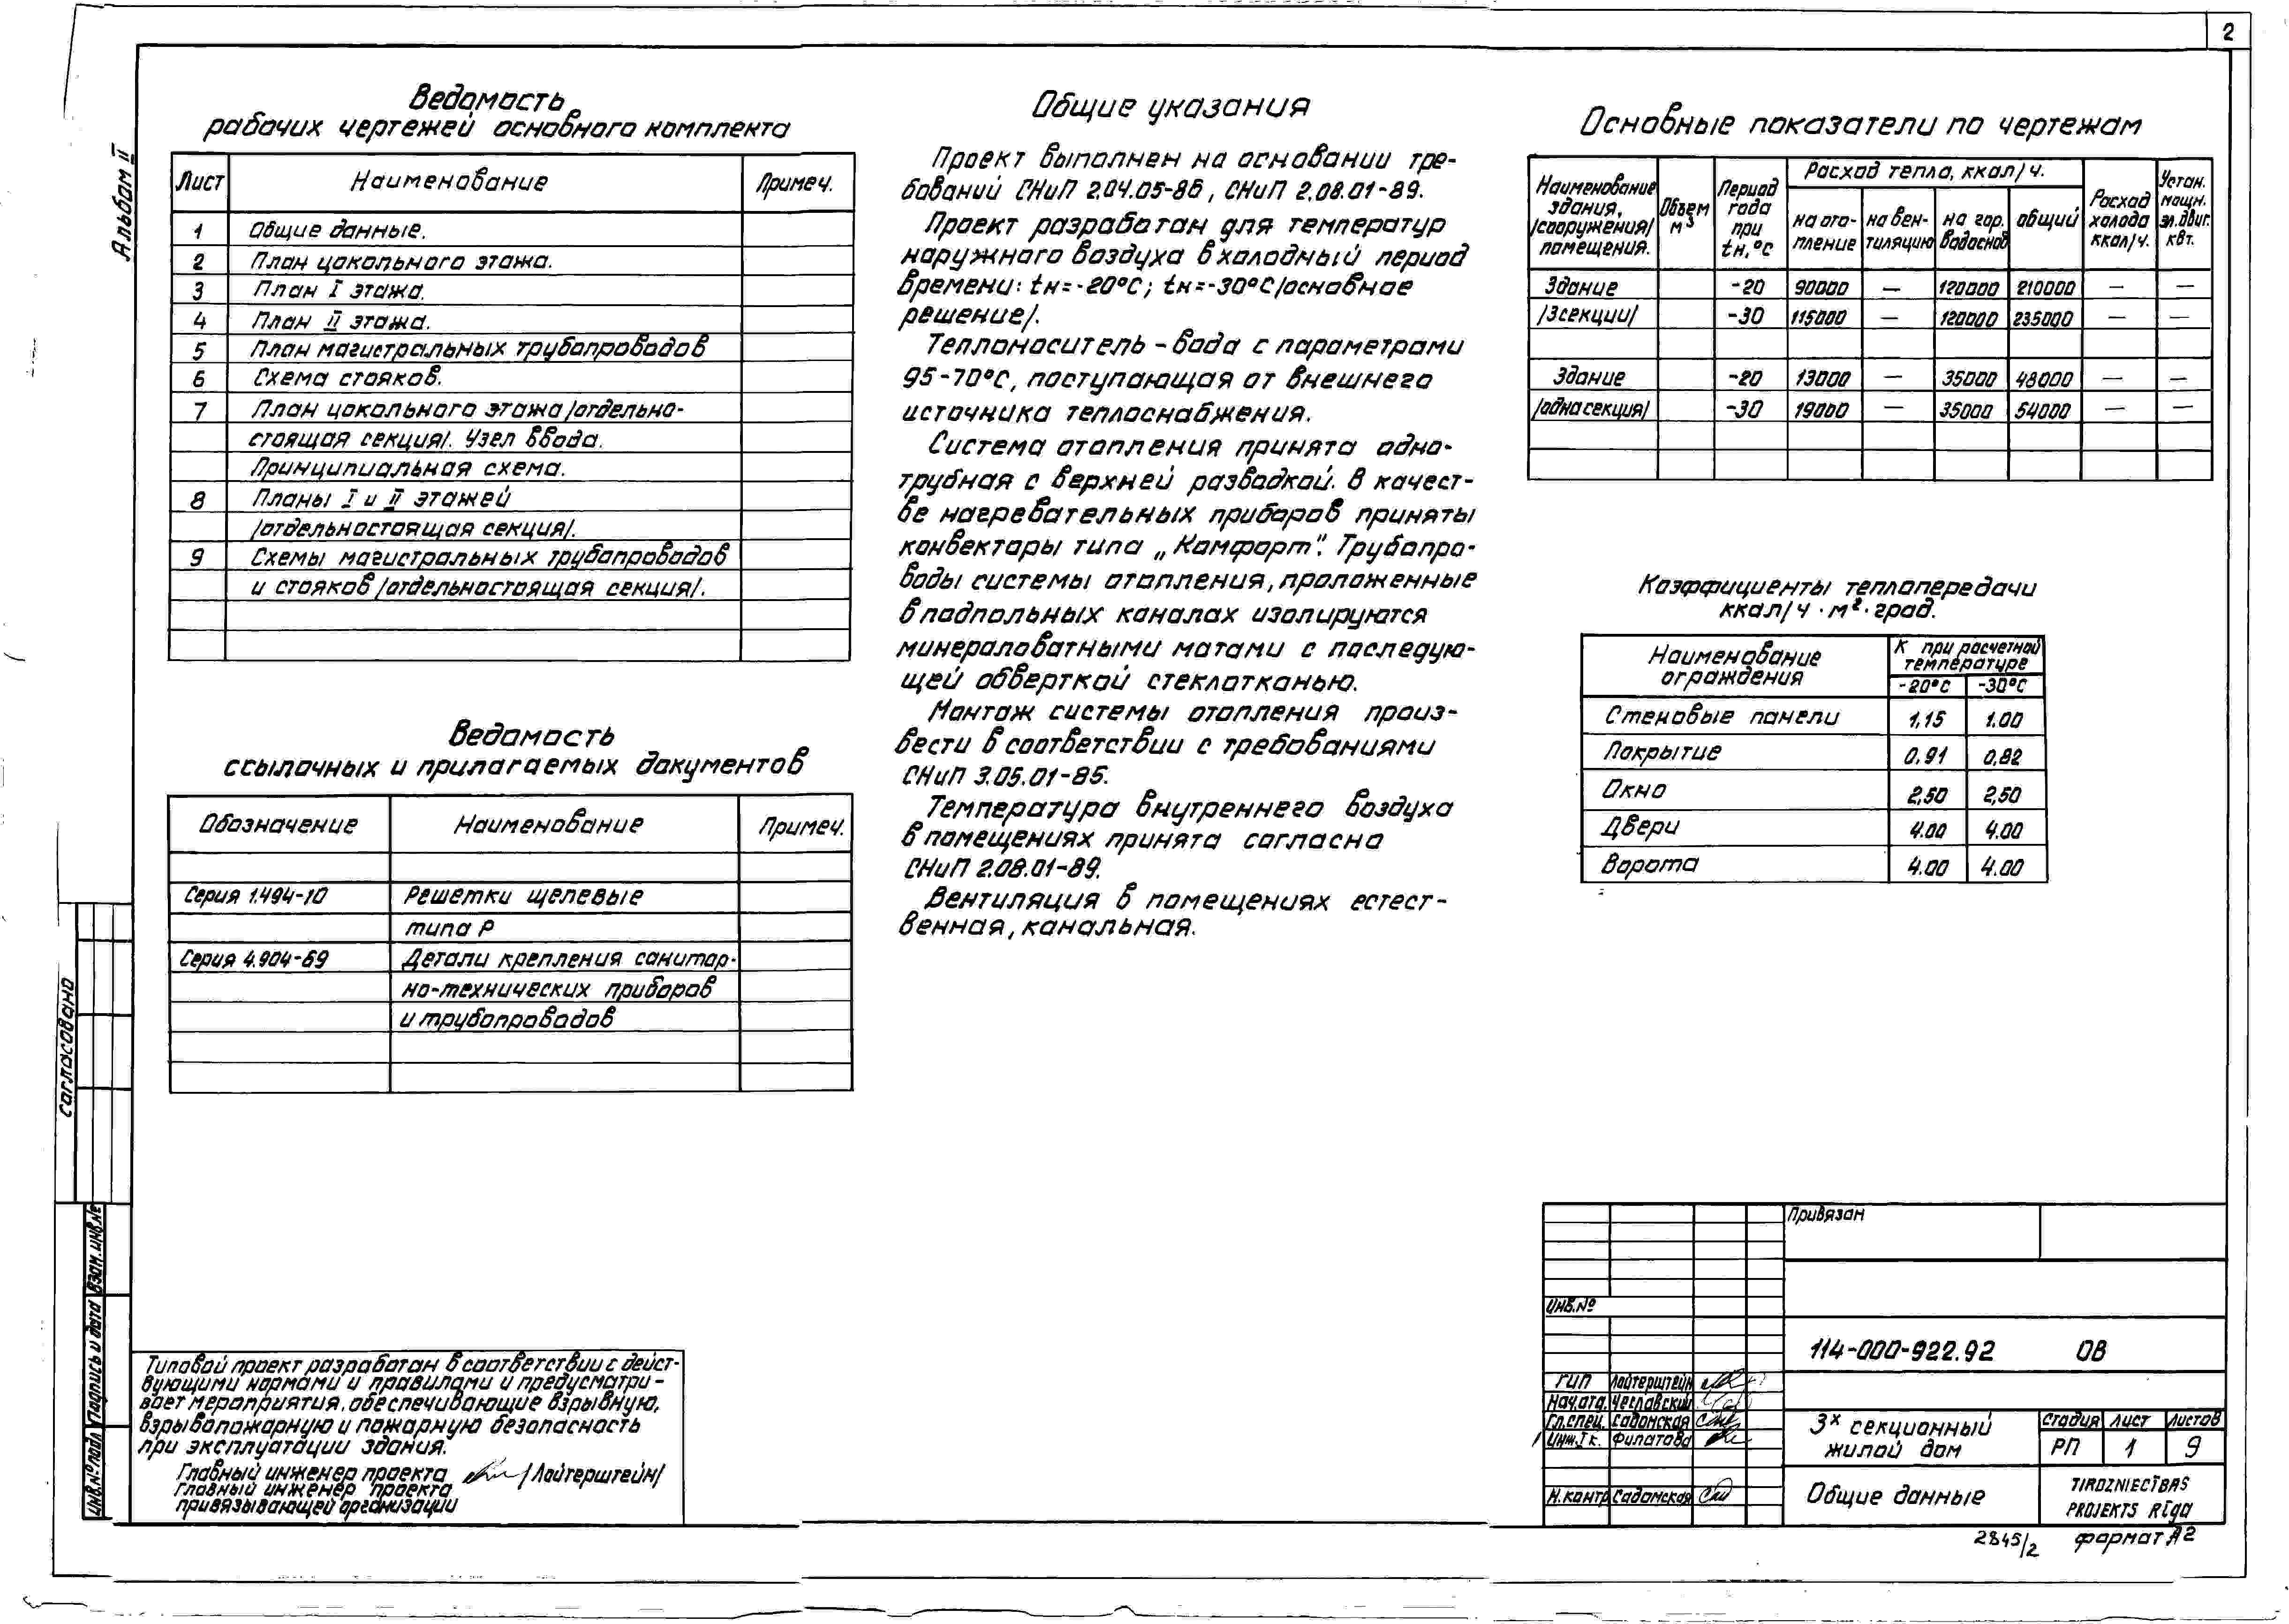 2
Альбом II
Ведомость
рабочих чертежей основного комплекта
Лист Наименование Примеч.
1 Общие данные.
2 План цокольного этажа.
3 План I этажа.
4 План II этажа.
5 План магистральных трубопроводов
6 Схема стояков.
7 План цокольного этажа/отдельно-
стоящая секция/. Узел ввода.
Принципиальная схема.
8 Планы I и II этажей
/отдельностоящая секция/.
9 Схемы магистральных трубопроводов
и стояков/отдельностоящая секция/.
Ведомость
ссылочных и прилагаемых документов
Обозначение Наименование Примеч.
Серия 1.494-10 Решетки щелевые
типа Р
Серия 4.904-69 Детали крепления санитар-
но-технических приборов
и трубопроводов
Общие указания
Проект выполнен на основании тре-
бований СНиП 2.04.05-86, СНиП 2.08.01-89.
Проект разработан для температур
наружного воздуха в холодный период
времени: tн=-20°С; tн=-30°С/основное
решение/.
Теплоноситель - вода с параметрами
95-70°С, поступающая от внешнего
источника теплоснабжения.
Система отопления принята одно-
трубная с верхней разводкой. В качест-
ве нагревательных приборов приняты
конвекторы типа „Комфорт". Трубопро-
воды системы отопления, проложенные
в подпольных каналах изолируются
минераловатными матами с последую-
щей обверткой стеклотканью.
Монтаж системы отопления произ-
вести в соответствии с требованиями
СНиП 3.05.01-85.
Температура внутреннего воздуха
в помещениях принята согласно
СНиП 2.08.01-89.
Вентиляция в помещениях естест-
венная, канальная.
Основные показатели по чертежам
Наименование здания, /сооружения/ помещения. Объем м³ Период года при tн,°С Расход тепла, ккал/ч. Расход холода ккал/ч. Устан. мощн. эл.двиг. квт.
на ото-пление на вен-тиляцию на гор. водоснаб общий
Здание -20 90000 — 120000 210000 — —
/3секции/ -30 115000 — 120000 235000 — —
Здание -20 13000 — 35000 48000 — —
/одна секция/ -30 19000 — 35000 54000 — —
Коэффициенты теплопередачи
ккал/ч·м²·град.
Наименование ограждения К при расчетной температуре
-20°С -30°С
Стеновые панели 1,15 1.00
Покрытие 0,91 0,82
Окно 2,50 2,50
Двери 4.00 4.00
Ворота 4.00 4.00
Согласовано
Инв.№ подл Подпись и дата Взам. инв.№
Типовой проект разработан в соответствии с дейст-
вующими нормами и правилами и предусматри-
вает мероприятия, обеспечивающие взрывную,
взрывопожарную и пожарную безопасность
при эксплуатации здания.
Главный инженер проекта /Лойтерштейн/
Главный инженер проекта
привязывающей организации
Привязан
Инв.№
114-000-922.92 ОВ
ГИП Лойтерштейн
Нач.отд. Чеславский
Гл.спец. Садомская
Инж.Iк. Филатова
Н.контр Садомская
3х секционный
жилой дом
Стадия Лист Листов
РП 1 9
Общие данные
TIRDZNIECĪBAS
PROJEKTS Rīga
2845/2 формат А2